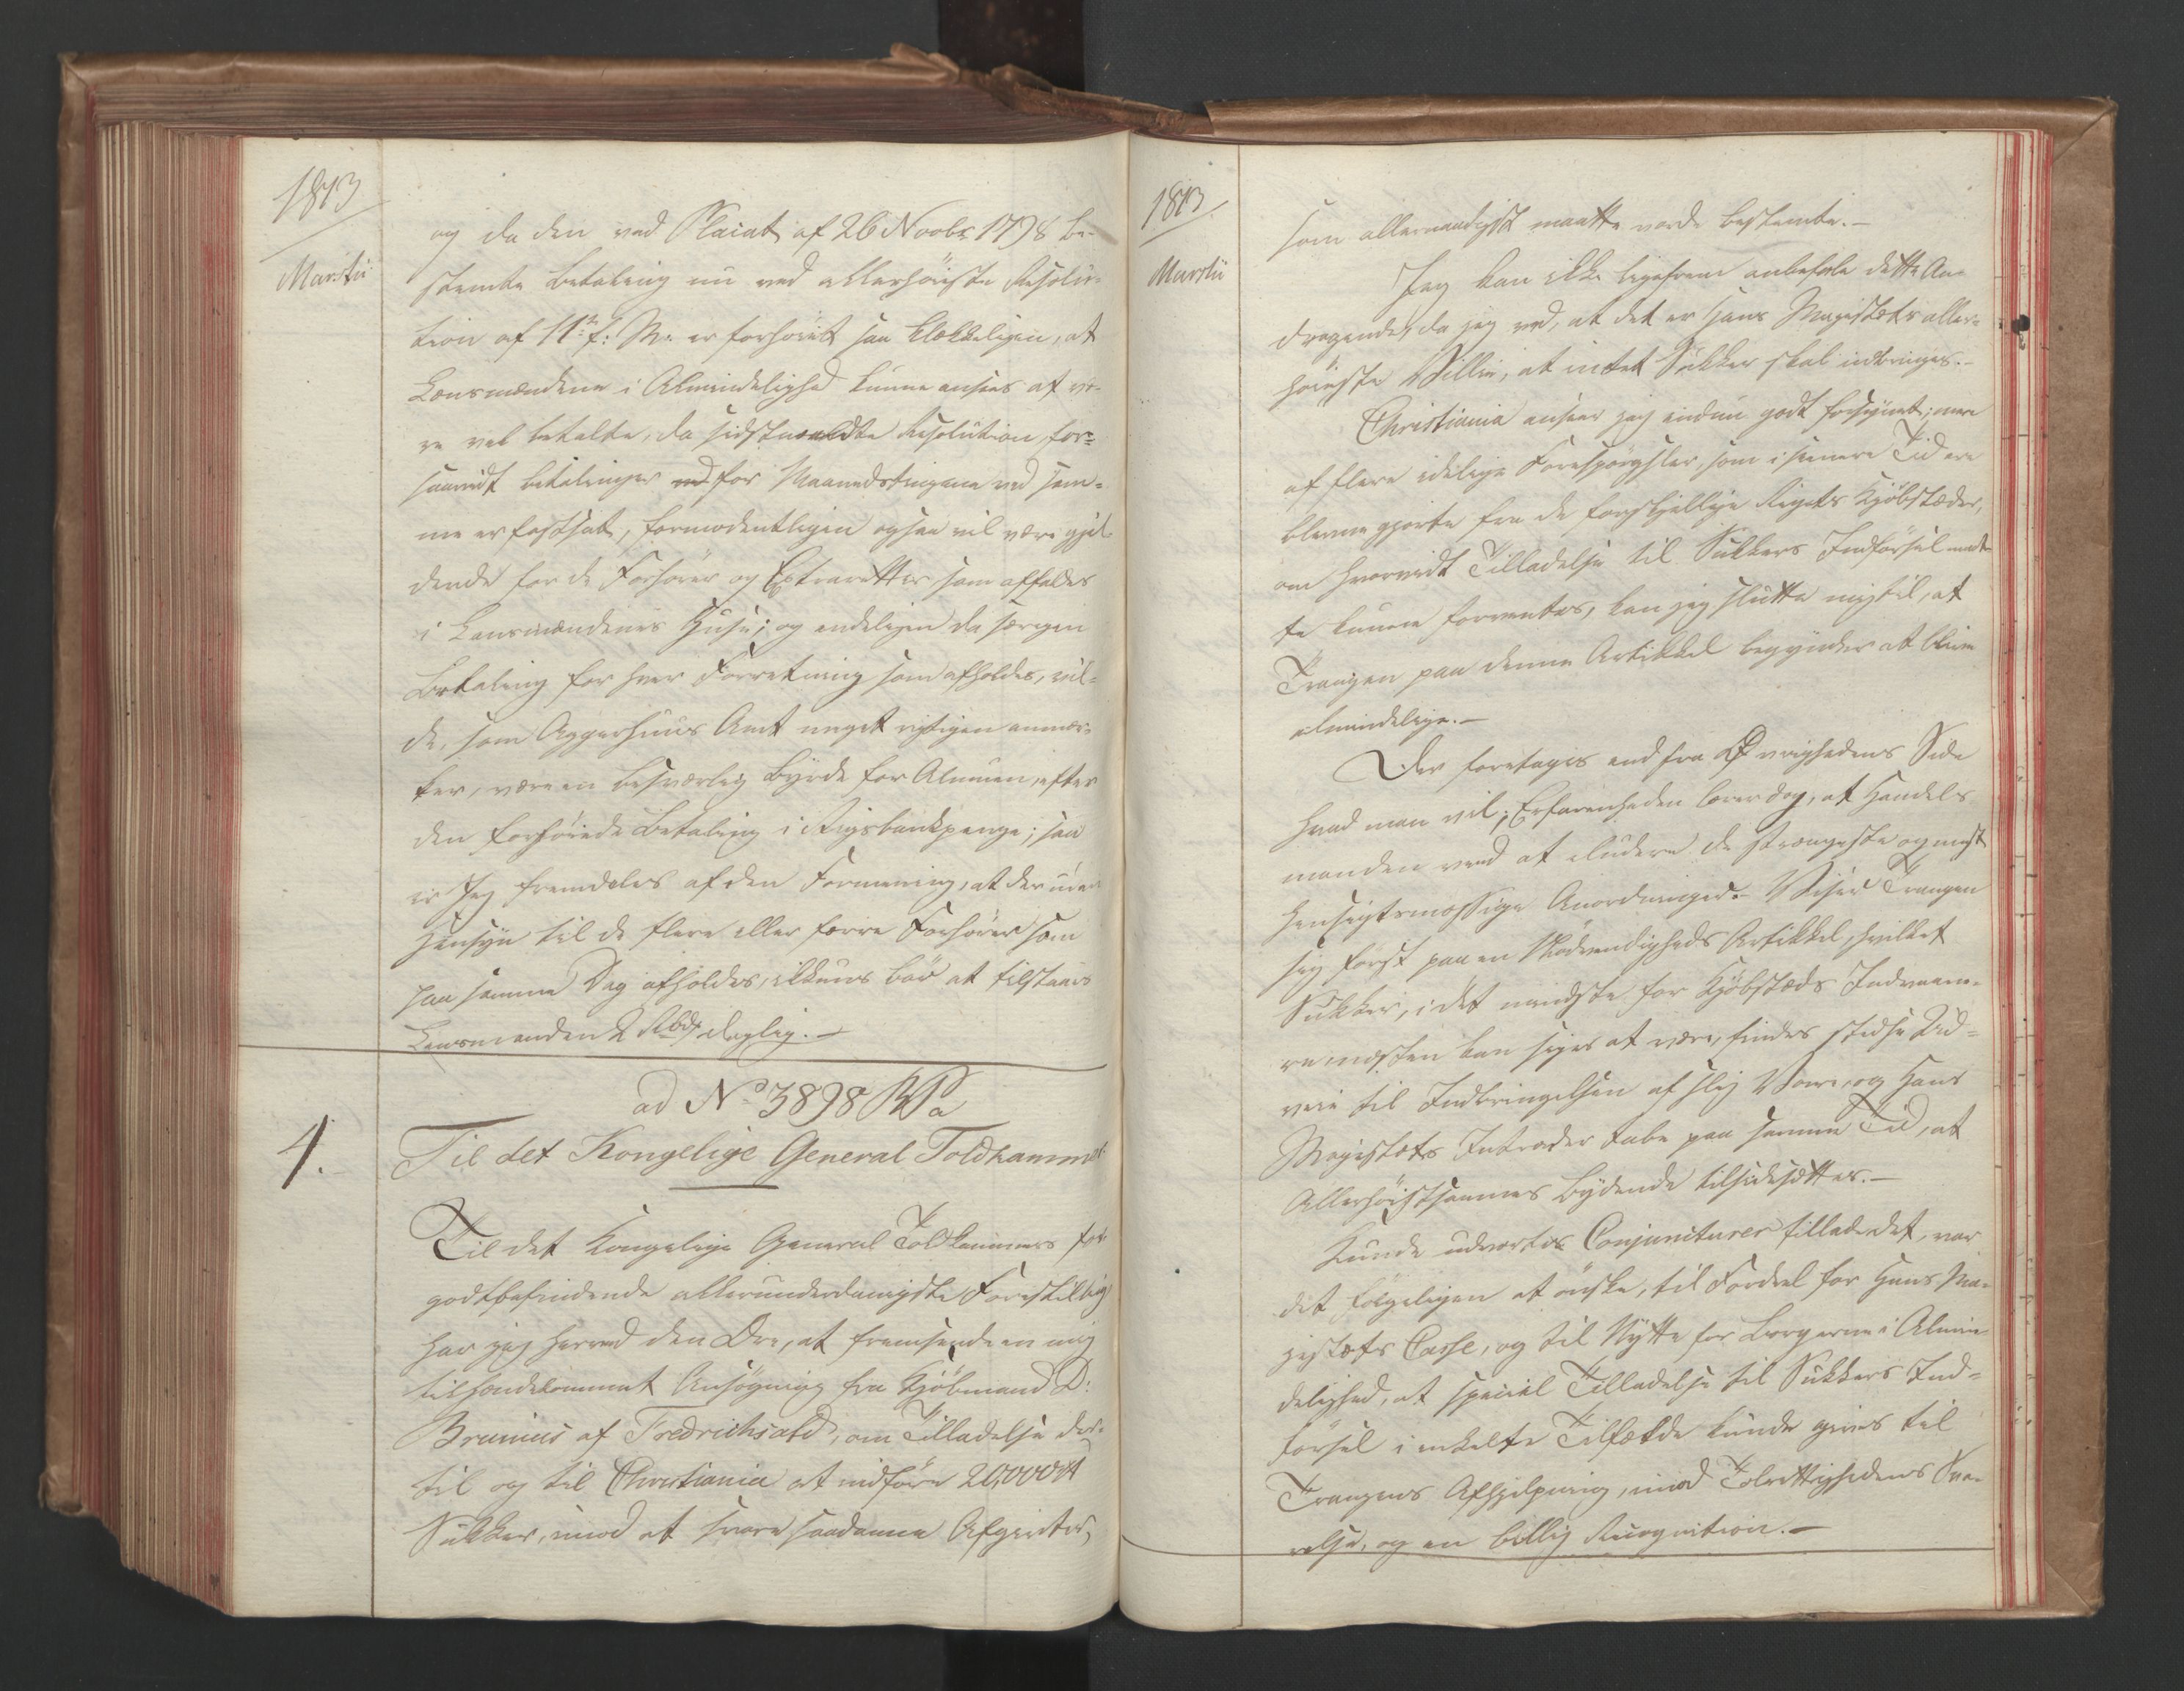 1813
Martii
og da den ved Placat af 26 Novbr 1798 be-
stemte Betaling nu ved allerhöieste Resolu-
tion af 11te f: M: er forhöiet saa klækkeligen, at
Lensmændene i Almindelighed kunne ansees at væ-
re vel betalte, da sidstmeldte Resolution, for-
saavidt Betalinger ved for Maanedstingene ved sam-
me er fastsat, formodentligen ogsaa vil være gjel-
dende for de Forhörer og Extraretter som affoldes
i Lensmændenes Huse; og endeligen da særegen
Betaling for hver Forretning som afholdes, vil-
de, som Aggerhuus Amt meget rigtigen anmær-
ker, være en besværlig Byrde for Almuen, efter
den forhöiede Betaling i Rigsbankpenge; saa
er Jeg fremdeles af den Formening, at der uden
Hensyn til de flere eller færre Forhörer som
paa samme Dag afholdes, ikkuns bör at tilstaaes
Lensmanden 2 Rbdr daglig.-
ad No 3898
4.
Til det Kongelige General Toldkammer
Til det Kongelige General Toldkammers for
godtbefindende allerunderdanigste Forestilling
har jeg herved den Ære, at fremsende en mig
tilhændekommet Ansögning fra Kjöbmand D:
Brunius af Fredrichshald, om Tilladelse der-
til og til Christiania at indföre 20,000 ℔
Sukker, imod at svare saadanne Afgivter,
1813.
Martii
som allernaadigst maatte vorde bestemte.-
Jeg kan ikke ligefrem anbefale dette An-
dragende, da jeg ved, at det er Hans Majestæts aller-
höieste Villie, at intet Sukker skal indbringes.-
Christiania anseer jeg endnu godt forsynet; men
af flere idelige Forespörgsler, som i senere Tid ere
blevne gjorte fra de forskjellige Rigets Kjöbstæder,
om hvorvidt Tilladelse til Sukkers Indförsel maat-
te kunne forventes, kan jeg slutte mig til, at
Trangen paa denne Artikkel begynder at blive
almindelige.-
Der foretages end fra Øvrighedens Side
hvad man vil; Erfarenheden lærer dog, at Handels
manden veed at eludere de strængeste og mest
hensigtsmæssige Anordninger.- Viser Trangen
sig först paa en Nödvendigheds Artikkel, hvilket
Sukker, i det mindste for Kjöbstæds Indvaane-
re næsten kan siges at være, findes stedse Ud-
veie til Indbringelsen af slig Vare, og Hans
Majestæts Intrader tabe paa samme Tid, at
Allerhöistsammes Bydende tilsidesættes.-
Kunde udvortes Conjuncturer tillade det, var
det fölgeligen at önske, til Fordeel for Hans Ma-
jestæts Casse, og til Nytte for Borgerne i Almin-
delighed, at special Tilladelse til Sukkers Ind-
försel i enkelte Tilfælde kunde gives til
Trangens Afhjelpning, imod Toldrettighedens Sva-
relse, og en billig Recognition.-